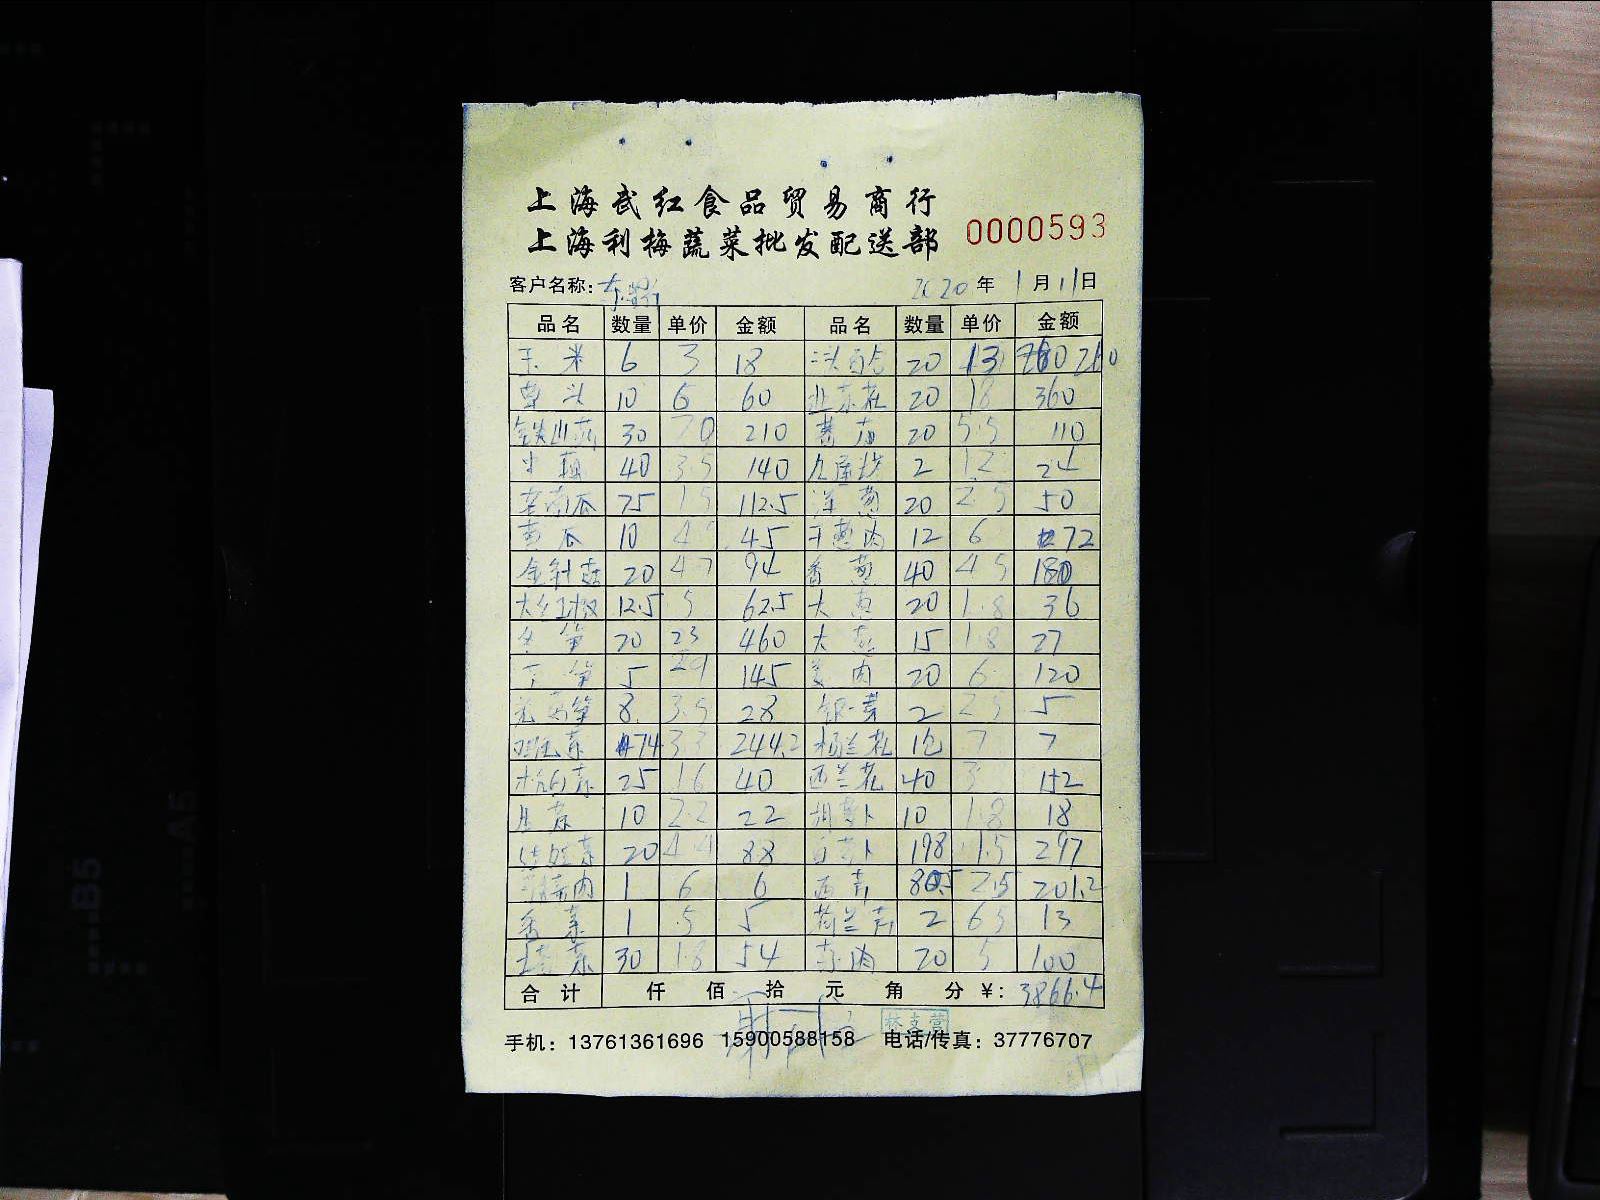 上海武红食品贸易商行
上海利梅蔬菜批发配送部 0000593
客户名称: 2020年1月11日
品名 数量 单价 金额 品名 数量 单价 金额
玉米 6 3 18 20 13 260 260
草头 10 6 60 20 18 360
铁山药 30 7.0 210 番茄 20 5.5 110
40 3.5 140 2 12 24
老南瓜 75 1.5 112.5 洋葱 20 2.5 50
黄瓜 10 4.5 45 干葱肉 12 6 72
金针菇 20 4.7 94 香葱 40 4.5 180
大红椒 12.5 5 62.5 大 20 1.8 36
冬笋 20 23 460 大葱 15 1.8 27
5 29 145 姜肉 20 6 120
莴笋 8 3.5 28 银芽 2 2.5 5
74 3.3 244.2 7 7
25 1.6 40 西兰花 40 3. 152
生菜 10 2.2 22 胡萝卜 10 1.8 18
娃娃菜 20 4.4 88 白萝卜 198 1.5 297
1 6 6 西芹 80.5 2.5 201.2
香菜 1 5 5 荷兰芹 2 6.5 13
30 1.8 54 20 5 100
合计 仟 佰 拾 元 角 分 ¥: 3866.4
手机: 13761361696 15900588158 电话/传真: 37776707